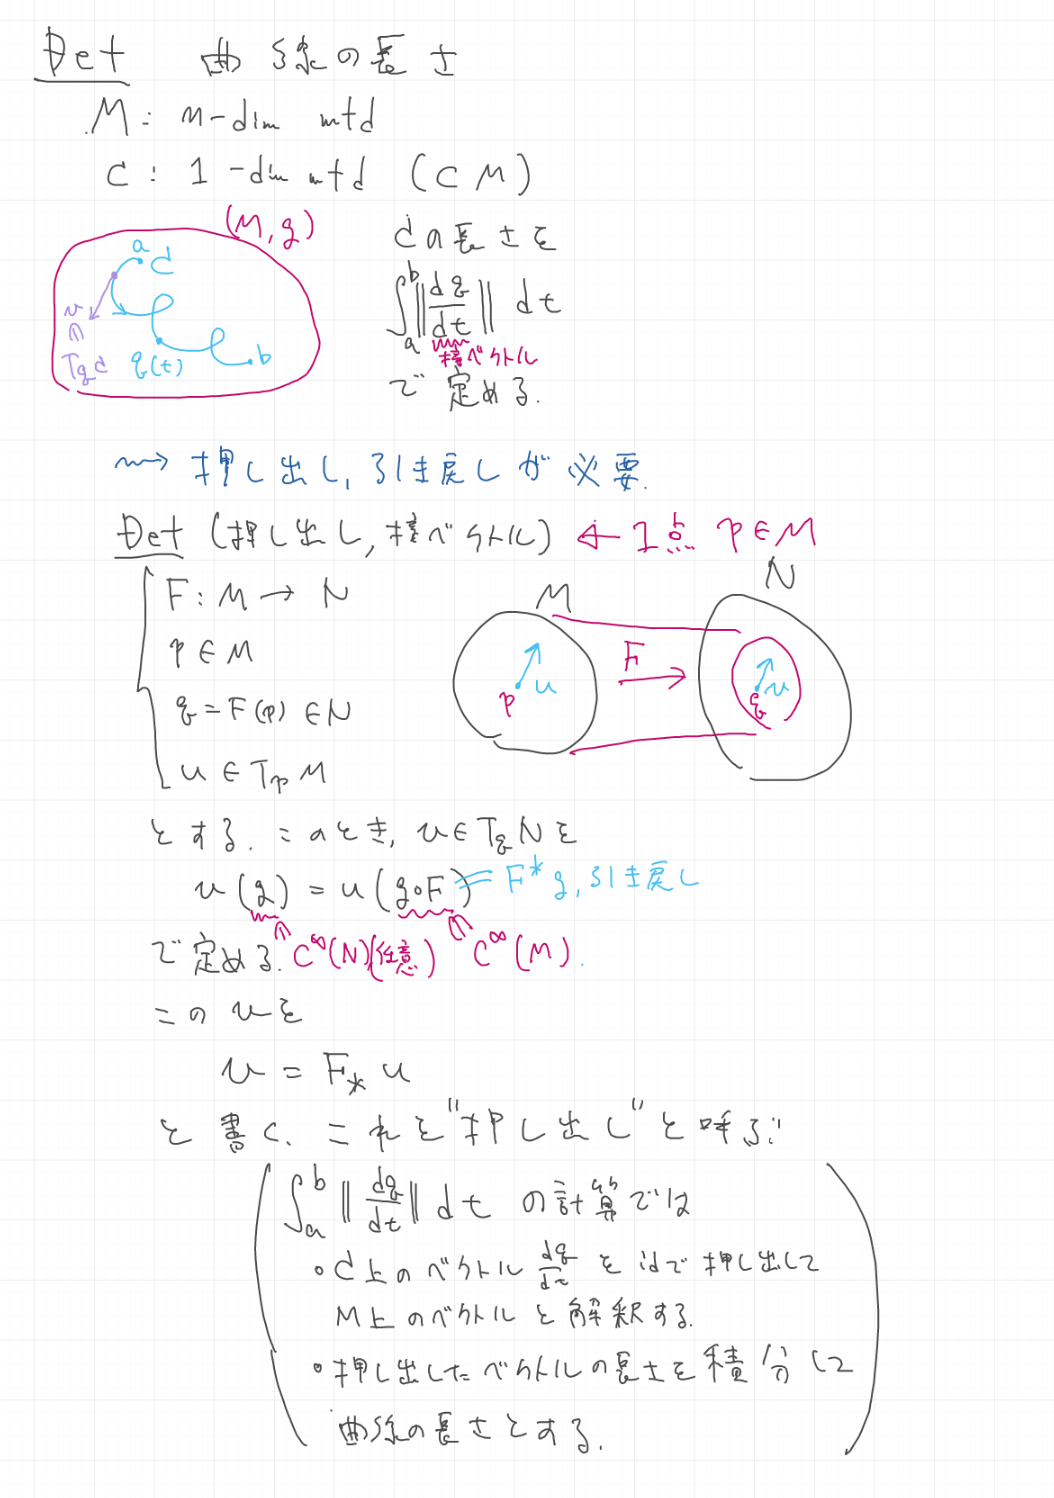 Def 曲線の長さ
M: n-dim mfd
C: 1-dim mfd (⊂ M)
(M, g)
a
C
v
∩
TqC
q(t)
b
Cの長さを
∫_a^b ‖dq/dt‖ dt
接ベクトル
で定める.
⇝ 押し出し, 引き戻しが必要.
Def (押し出し, 接ベクトル) ← 1点 p∈M
F: M → N
p ∈ M
q = F(p) ∈ N
u ∈ TpM
M
N
F
p
u
q
v
とする. このとき, v∈TqN を
v(g) = u(g∘F) = F*g, 引き戻し
で定める. C^∞(N)(任意) C^∞(M).
この v を
v = F_* u
と書く. これを"押し出し"と呼ぶ.
∫_a^b ‖dq/dt‖ dt の計算では
• C上のベクトル dq/dt を idで押し出して
M上のベクトルと解釈する.
• 押し出したベクトルの長さを積分して
曲線の長さとする.